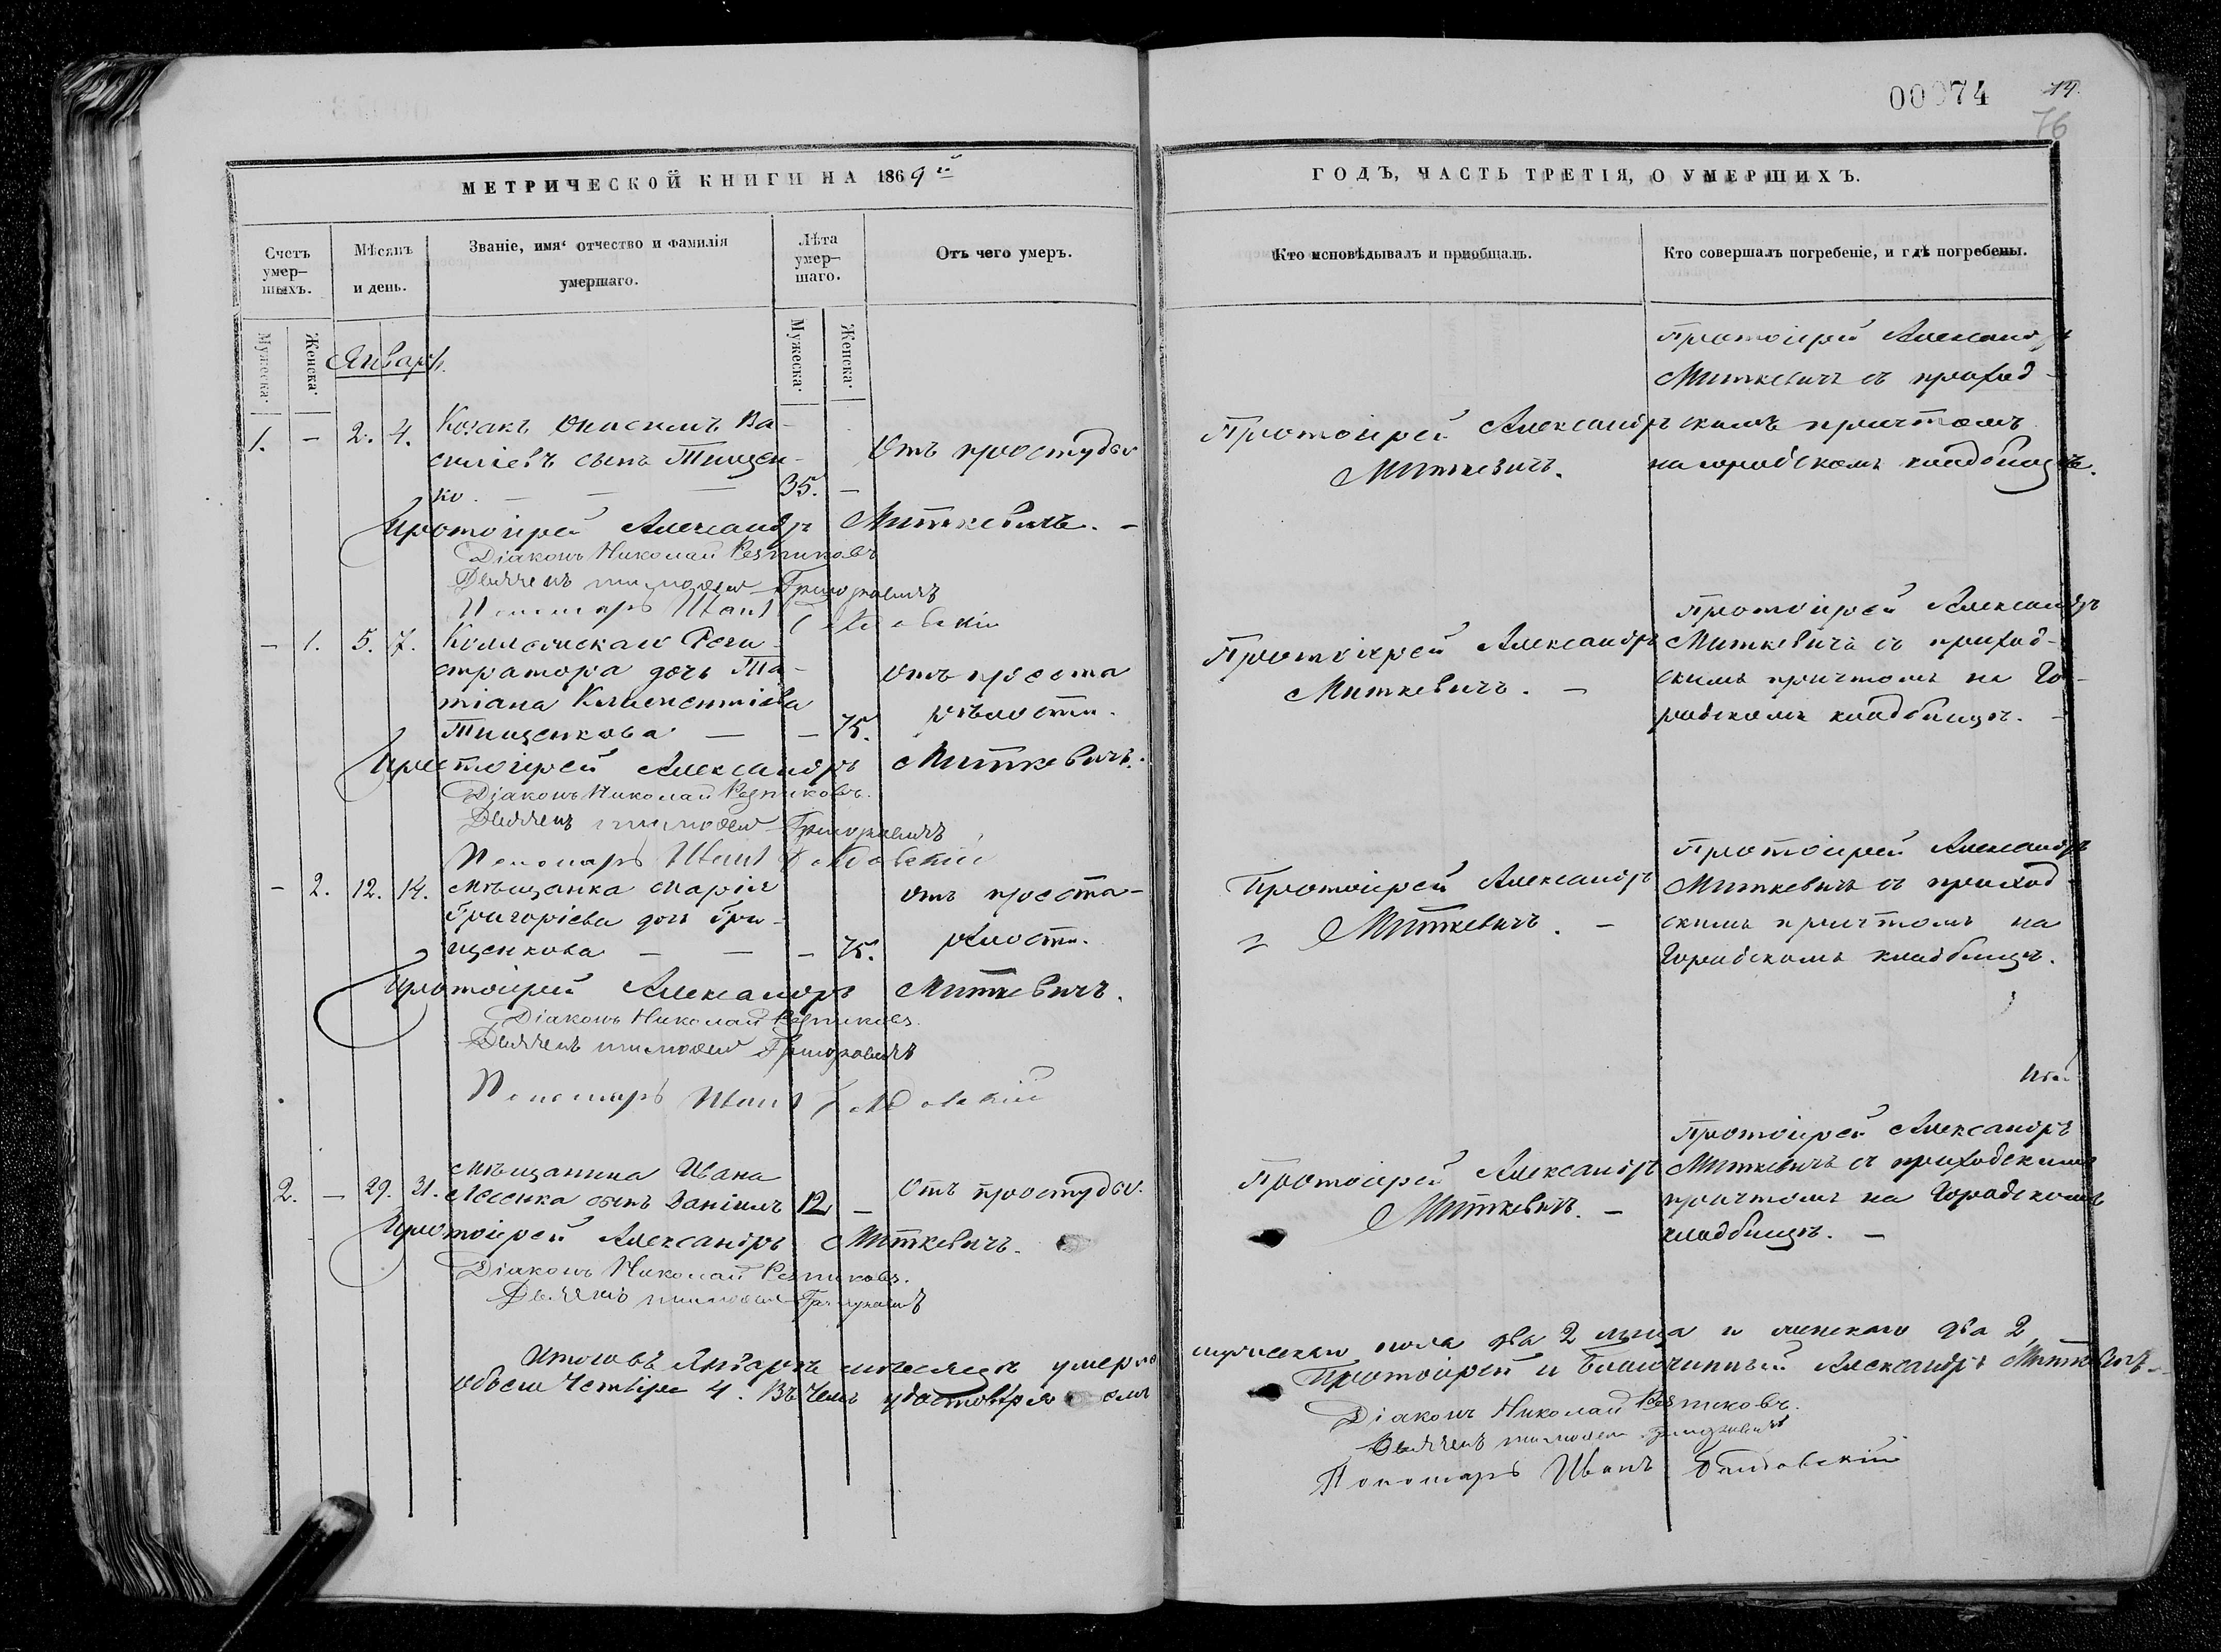 00074 14.
76
МЕТРИЧЕСКОЙ КНИГИ НА 1869й
ГОДЪ, ЧАСТЬ ТРЕТІЯ, О УМЕРШИХЪ.
Счетъ умер-шихъ.
Мѣсяцъ и день.
Званіе, имя, отчество и фамилія умершаго.
Лѣта умер-шаго.
Отъ чего умеръ.
Кто исповѣдывалъ и пріобщалъ.
Кто совершалъ погребеніе, и гдѣ погребены.
Мужеска.
Женска.
Мужеска.
Женска.
Январь.
1. — 2. 4. Козакъ Онисимъ Ва-
силіевъ сынъ Тищен-
ко. — — — 35. —
Отъ простуды
Протоіерей Александръ
Миткевичъ.
Протоіерей Александръ
Миткевичъ съ приход-
скимъ причтомъ
на городскомъ кладбищѣ.
Протоіерей Александръ Миткевичъ. —
Діаконъ Николай Резниковъ
Дьячекъ Тимофей Григоровичъ
Пономарь Иванъ
— 1. 5. 7. Коллежскаго Реги-
стратора дочь Та-
тіана Климентіева
Тищенкова — — 75.
отъ преста
рѣлости.
Протоіерей Александръ
Миткевичъ. —
Протоіерей Александръ
Миткевичъ съ приход-
скимъ причтомъ на Го-
родскомъ кладбищѣ. —
Протоіерей Александръ Миткевичъ.
Діаконъ Николай Резниковъ.
Дьячекъ Тимофей Григоровичъ
Пономарь Иванъ
— 2. 12. 14. Мѣщанка Марія
Григоріева дочь Гри-
щенкова — — — 75.
отъ преста-
рѣлости.
Протоіерей Александръ
Миткевичъ. —
Протоіерей Александръ
Миткевичъ съ приход-
скимъ причтомъ на
Городскомъ кладбищѣ.
Протоіерей Александръ Миткевичъ.
Діаконъ Николай Резниковъ.
Дьячекъ Тимофей Григоровичъ
Пономарь Иванъ
2. — 29. 31. Мѣщанина Ивана
сынъ Даніилъ 12 —
Отъ простуды.
Протоіерей Александръ
Миткевичъ. —
Протоіерей Александръ
Миткевичъ съ приходскимъ
причтомъ на Городскомъ
кладбищѣ. —
Протоіерей Александръ Миткевичъ.
Діаконъ Николай Резниковъ.
Дьячекъ Тимофей Григоровичъ
Итого въ Январѣ мѣсяцѣ умерло мужескаго пола два 2 лица и женскаго два 2
обоего четыре 4. Въ чемъ удостовѣряемъ
Протоіерей и Благочинный Александръ Миткевичъ.
Діаконъ Николай Резниковъ.
Дьячекъ Тимофей Григоровичъ
Пономарь Иванъ